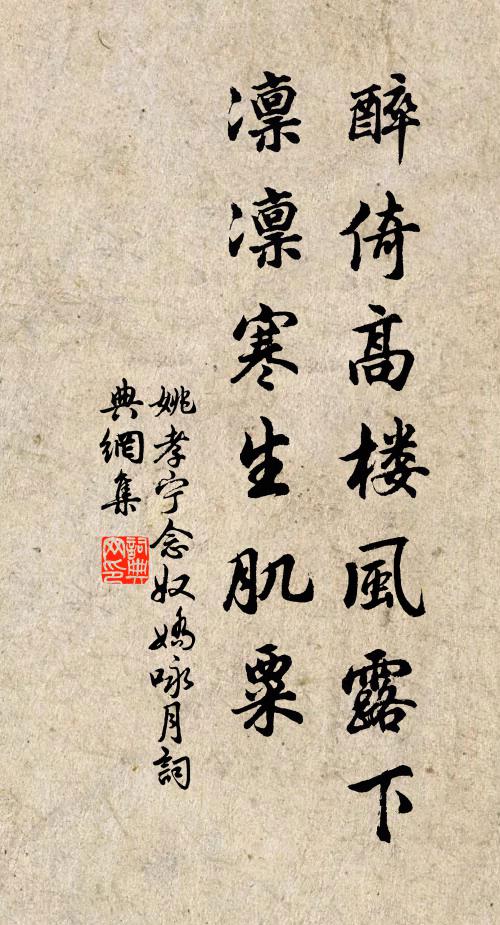 醉倚高楼風露下
凛凛寒生肌粟
姚孝宁念奴嬌咏月詞
典網集
詞典網印